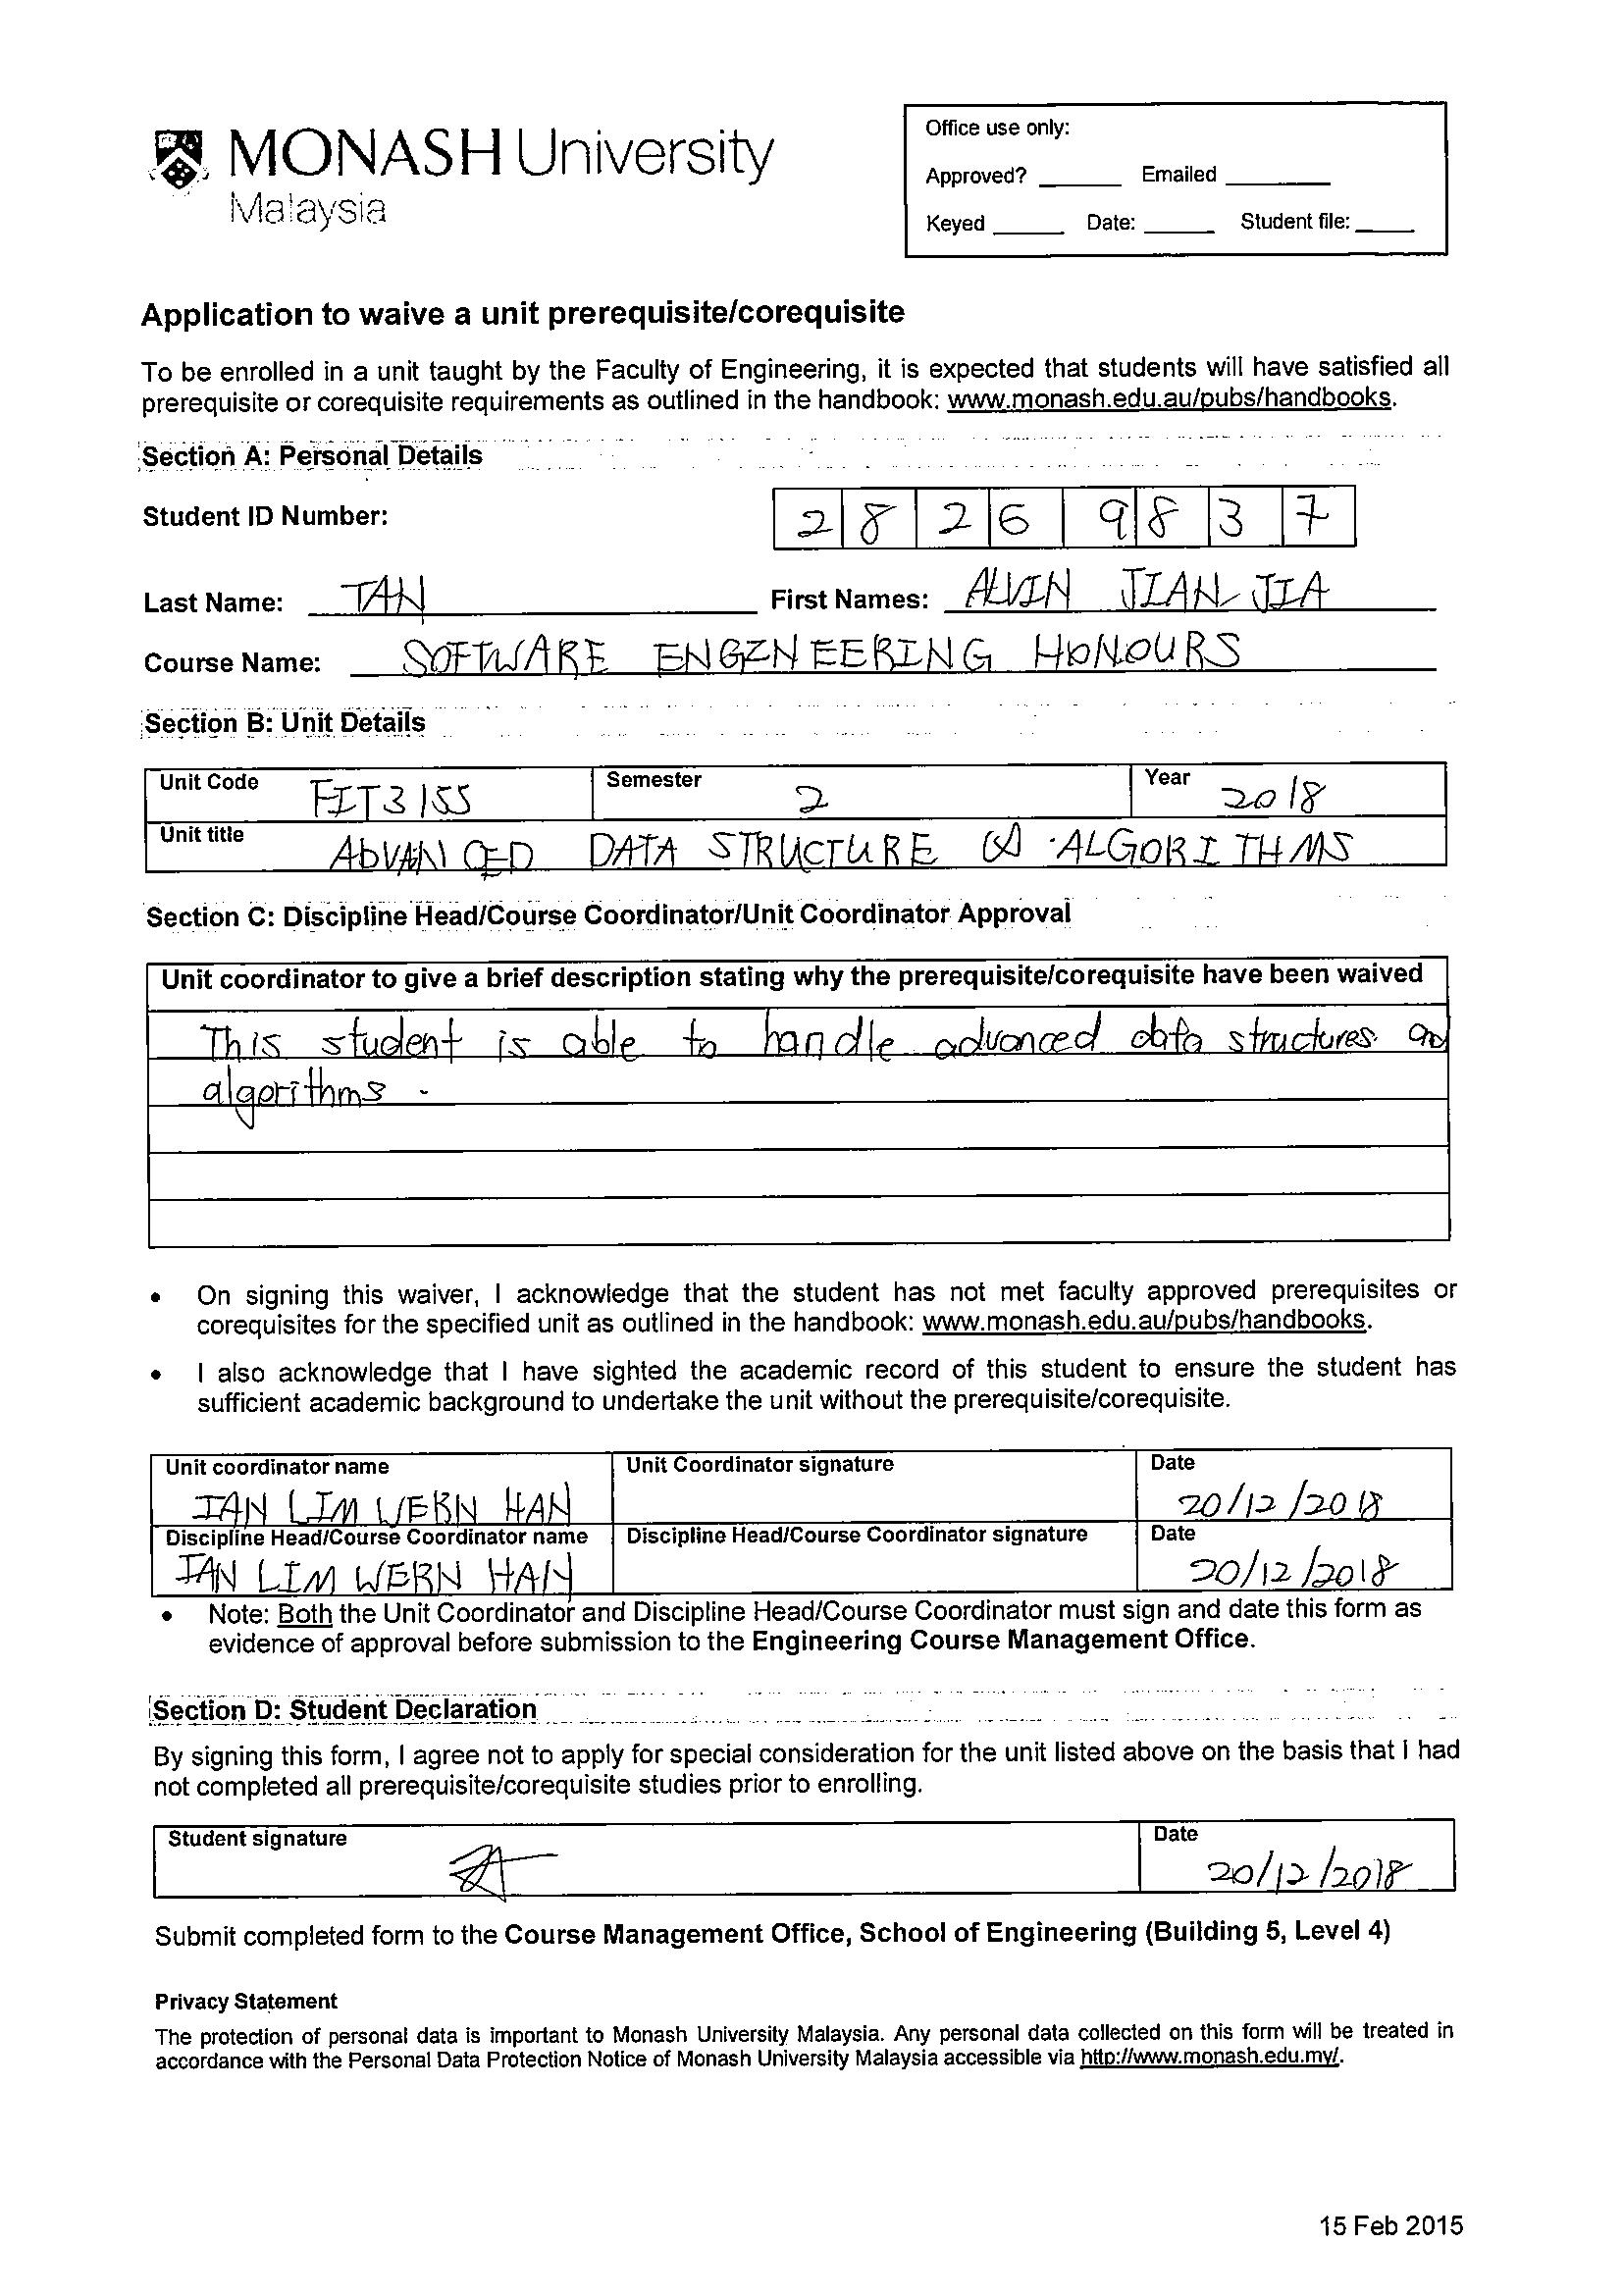 MONASH University
Malaysia
Office use only:
Approved? Emailed
Keyed Date: Student file:
Application to waive a unit prerequisite/corequisite
To be enrolled in a unit taught by the Faculty of Engineering, it is expected that students will have satisfied all
prerequisite or corequisite requirements as outlined in the handbook: www.monash.edu.au/pubs/handbooks.
Section A: Personal Details
Student ID Number: 2 8 2 6 9 8 3 7
Last Name: TAN First Names: ALVIN JIAN JIA
Course Name: SOFTWARE ENGINEERING HONOURS
Section B: Unit Details
Unit Code FIT3155 Semester 2 Year 2018
Unit title ADVANCED DATA STRUCTURE & ALGORITHMS
Section C: Discipline Head/Course Coordinator/Unit Coordinator Approval
Unit coordinator to give a brief description stating why the prerequisite/corequisite have been waived
This student is able to handle advanced data structures and
algorithms.
• On signing this waiver, I acknowledge that the student has not met faculty approved prerequisites or
corequisites for the specified unit as outlined in the handbook: www.monash.edu.au/pubs/handbooks.
• I also acknowledge that I have sighted the academic record of this student to ensure the student has
sufficient academic background to undertake the unit without the prerequisite/corequisite.
Unit coordinator name Unit Coordinator signature Date
IAN LIM WERN HAN 20/12/2018
Discipline Head/Course Coordinator name Discipline Head/Course Coordinator signature Date
IAN LIM WERN HAN 20/12/2018
• Note: Both the Unit Coordinator and Discipline Head/Course Coordinator must sign and date this form as
evidence of approval before submission to the Engineering Course Management Office.
Section D: Student Declaration
By signing this form, I agree not to apply for special consideration for the unit listed above on the basis that I had
not completed all prerequisite/corequisite studies prior to enrolling.
Student signature Date
20/12/2018
Submit completed form to the Course Management Office, School of Engineering (Building 5, Level 4)
Privacy Statement
The protection of personal data is important to Monash University Malaysia. Any personal data collected on this form will be treated in
accordance with the Personal Data Protection Notice of Monash University Malaysia accessible via http://www.monash.edu.my/.
15 Feb 2015